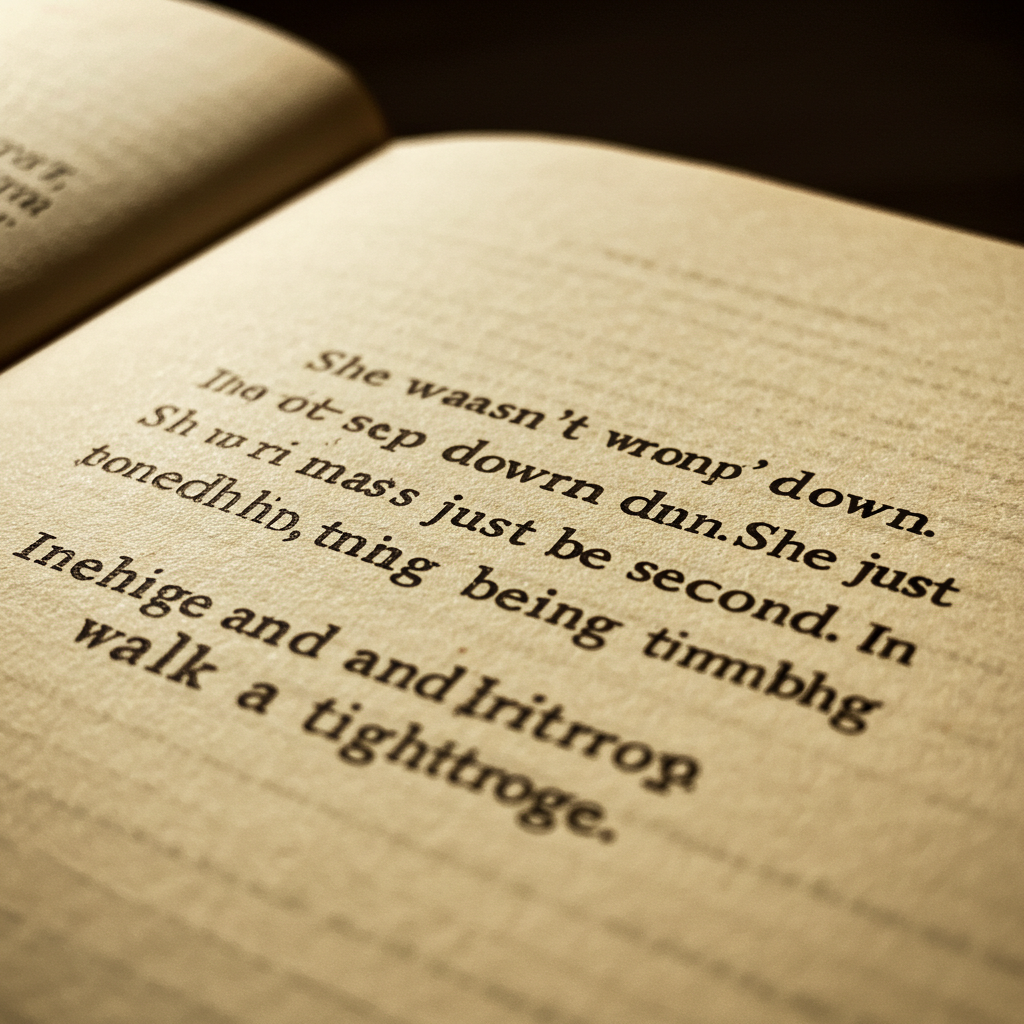 She waasn't wronp' down.
Ino ot sep dowrn dnn. She just
Sh w ri mass just be second. In
bonedhhp, tning being timmbhg
Inehige and and Iritrrop
walk a tighttroge.